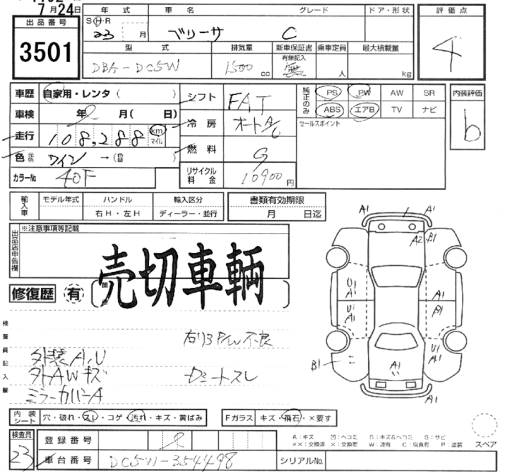 7月24日
出品番号
3501
年式 車名 グレード ドア・形状
S H R 23 年 月 ベリーサ C
型式 排気量 新車保証書 乗車定員 最大積載量
有無記入
DBA-DC5W 1500 cc 無 人 kg
評価点
4
車歴 自家用・レンタ( )
車検 年 月( 日)
走行 108,288 km マイル
色 ワイン →(
カラーNo 40F
シフト FAT
冷房 オートA/C
燃料 G
リサイクル料金 10900 円
純正のみ
PS PW AW SR
ABS エアB TV ナビ
セールスポイント
内装評価
b
輸入車
モデル年式 ハンドル 輸入区分
右H・左H ディーラー・並行
書類有効期限
月 日迄
※注意事項等記載
出品店申告欄
売切車輌
修復歴 有
検査員記入欄
外装A,U
外AWキズ
ミラーカバーA
右リヤP/W不良
A1 A1 A2 B1 A1 B1 U1 A1 A1 U1 A1 B1 A1 A1
内装シート 穴・破れ・スレ・コゲ 汚れ・キズ・黄ばみ
Fガラス キズ・飛石・×要す
スペア
検査員
23
登録番号
車台番号 DC5W-354498
シリアルNo.